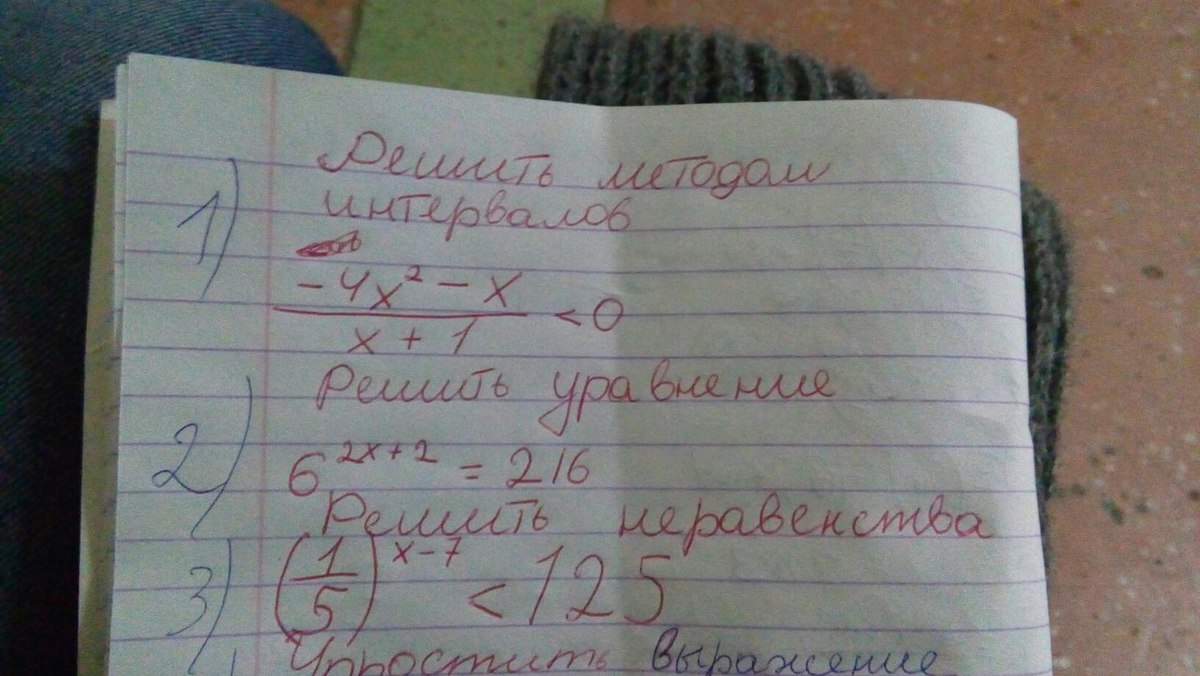 1) Решить методом
интервалов
-4x² - x
x + 1 < 0
Решить уравнение
2) 6^{2x+2} = 216
Решить неравенства
3) (1/5)^{x-7} < 125
Упростить выражение